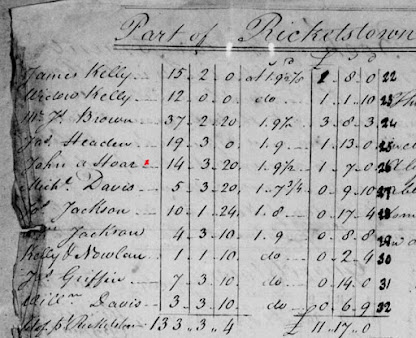 Part of Rickelstown
£ s d
James Kelly 15 .. 2 .. 0 at 1.9½ 1 .. 8 .. 0 22
Widow Kelly 12 .. 0 .. 0 do 1 .. 1 .. 10 23
Brown 37 .. 2 .. 20 1.9½ 3 .. 8 .. 3 24
Jas Headen 19 .. 3 .. 0 1.9 1 .. 13 .. 0 25
John a Hoar 14 .. 3 .. 20 1.9½ 1 .. 7 .. 0 26
Michl Davis 5 .. 3 .. 20 1-7¾ 0 .. 9 .. 10 27
Jackson 10 .. 1 .. 24 1.8 0 .. 17 .. 4 28
Jackson 4 .. 3 .. 10 1.9 0 .. 8 .. 8 29
Kelly & Nowlan 1 .. 1 .. 10 do 0 .. 2 .. 4 30
Griffin 7 .. 3 .. 10 do 0 .. 14 .. 0 31
Willm Davis 3 .. 3 .. 10 do 0 .. 6 .. 9 32
133 .. 3 .. 4 £ 11 .. 17 .. 0